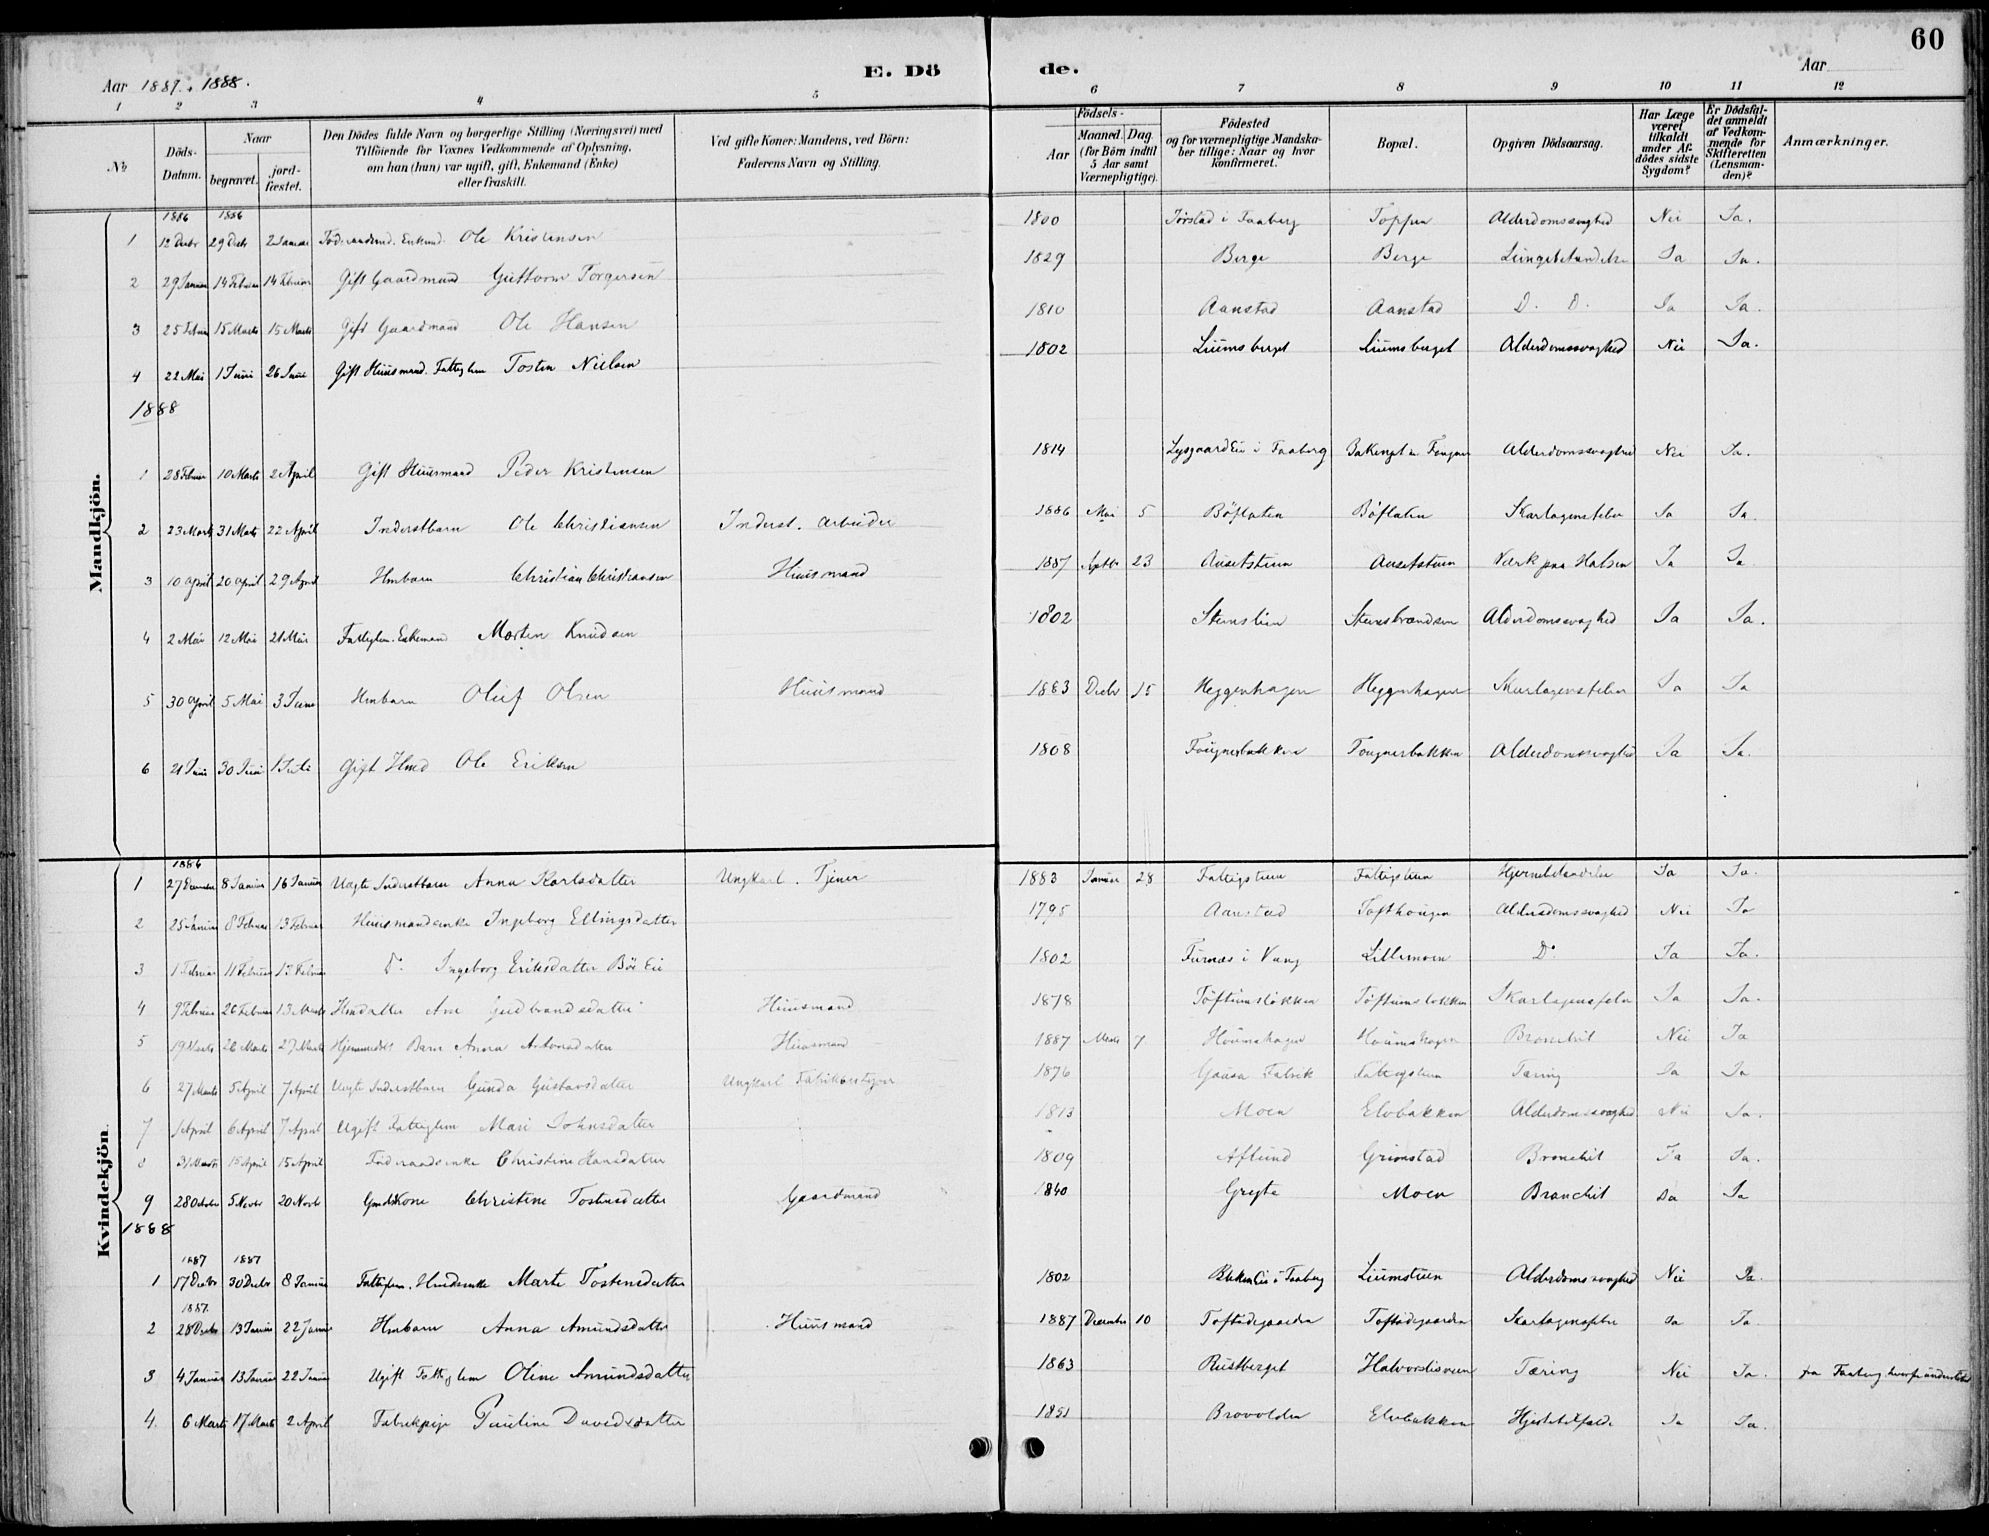 60
Aar 1887 & 1888.
E. Dö
de.
Aar
1 2 3 4 5 6 7 8 9 10 11 12
No.
Döds-Datum.
Naar
begravet.
jord-fæstet.
Den Dödes fulde Navn og borgerlige Stilling (Næringsvei) med
Tilföiende for Voxnes Vedkommende af Oplysning,
om han (hun) var ugift, gift, Enkemand (Enke)
eller fraskilt.
Ved gifte Koner: Mandens, ved Börn:
Faderens Navn og Stilling.
Födsels-
Aar
Maaned. Dag.
(for Börn indtil
5 Aar samt
Værnepligtige).
Födested
og for værnepligtige Mandska-
ber tillige: Naar og hvor
konfirmeret.
Bopæl.
Opgiven Dödsaarsag.
Har Læge
været
tilkaldt
under Af-
dödes sidste
Sygdom?
Er Dödsfal-
det anmeldt
af Vedkom-
mende for
Skifteretten
(Lensman-
den)?
Anmærkninger.
Mandkjön.
1886 1886
1 12 Decbr 29 Decbr 2 Januar Ole Kristensen 1800 Jörstad i Faaberg Toppen Alderdomssvaghed Nei Ja.
2 29 Januar 14 Februar 14 Februar Gift Gaardmand Guttorm Torgersen 1829 Berge Berge Lungebetændelse Ja Ja.
3 25 Februar 15 Marts 15 Marts Gift Gaardmand Ole Hansen 1810 Aanstad Aanstad D. D. Ja Ja.
4 22 Mai 1 Juni 26 Juni Gift Huusmand. Fattiglem Tosten Nielsen 1802 Liumsberget Liumsberget Alderdomssvaghed Nei Ja.
1888
1 28 Februar 10 Marts 2 April Gift Huusmand Peder Kristensen 1814 Lysgaard Eie i Faaberg Alderdomssvaghed Nei Ja.
2 23 Marts 31 Marts 22 April Inderstbarn Ole Christiansen Inderst. Arbeider 1886 Mai 5 Böflaten Böflaten Skarlagensfeber Ja Ja.
3 10 April 20 April 29 April Hmbarn Christian Christiansen Huusmand 1887 Septbr 23 Ausetstuen Ausetstuen Værk paa Halsen Ja Ja
4 2 Mai 12 Mai 21 Mai Fattiglem. Enkemand Morten Knudsen 1802 Stenslien Alderdomssvaghed Ja Ja.
5 30 April 5 Mai 3 Juni Hmbarn Oluf Olsen Huusmand 1883 Decbr 15 Heggenhagen Heggenhagen Skarlagensfeber Ja Ja
6 21 Juni 30 Juni 1 Juli Gift Hmd Ole Eriksen 1808 Fougnerbakken Fougnerbakken Alderdomssvaghed Ja Ja.
Kvindekjön.
1886
1 27 December 8 Januar 16 Januar Uægte Inderstbarn Anna Karlsdatter Ungkarl. Tjener 1883 Januar 28 Fattigstuen Fattigstuen Hjernebetændelse Ja Ja.
2 25 Januar 8 Februar 13 Februar Huusmandsenke Ingeborg Ellingsdatter 1795 Aanstad Tofthougen Alderdomssvaghed Nei Ja
3 1 Februar 11 Februar 13 Februar D. Ingeborg Eriksdatter Böe Eie 1802 Furnæs i Vang Lillemoen D. Ja Ja.
4 9 Februar 26 Februar 13 Marts Hmdatter Ane Gudbrandsdatter Huusmand 1878 Töftumslökken Töftumslökken Skarlagensfeber Ja Ja.
5 19 Marts 26 Marts 27 Marts Hjemmedöbt Barn Anna Antonsdatter Huusmand 1887 Marts 7 Houmshagen Houmshagen Bronchit Nei Ja
6 27 Marts 5 April 7 April Uægte Inderstbarn Gunda Gustavsdatter Ungkarl 1876 Gausa Fabrik Fattigstuen Tæring Ja Ja
7 1 April 6 April 7 April Ugift Fattiglem Mari Johnsdatter 1813 Moen Elvebakken Alderdomssvaghed Nei Ja.
8 31 Marts 15 April 15 April Föderaadsenke Christine Hansdatter 1809 Aflund Grimstad Bronchit Ja Ja.
9 28 October 5 Novbr 20 Novbr Gmdskone Christine Tostensdatter Gaardmand 1840 Gryte Moen Bronchit Ja Ja
1888
1887 1887
1 17 Decbr 30 Decbr 8 Januar Fattiglem. Hmdsenke Marte Tostensdatter 1802 Bakken Eie i Faaberg Liumstuen Alderdomssvaghed Nei Ja.
1887.
2 28 Decbr 13 Januar 22 Januar Hmbarn Anna Amundsdatter Huusmand 1887 December 10 Toftodegaarden Toftodegaarden Skarlagensfeber Ja Ja.
3 4 Januar 13 Januar 22 Januar Ugift Fattiglem Oline Amundsdatter 1863 Rustberget Halvorslisveen Tæring Nei Ja. fra Faaberg hvorfra understöttet
4. 6 Marts 17 Marts 2 April Fabrikpige Pauline Davidsdatter 1851 Brovolden Elvebakken Hjertetilfælde Ja Ja.